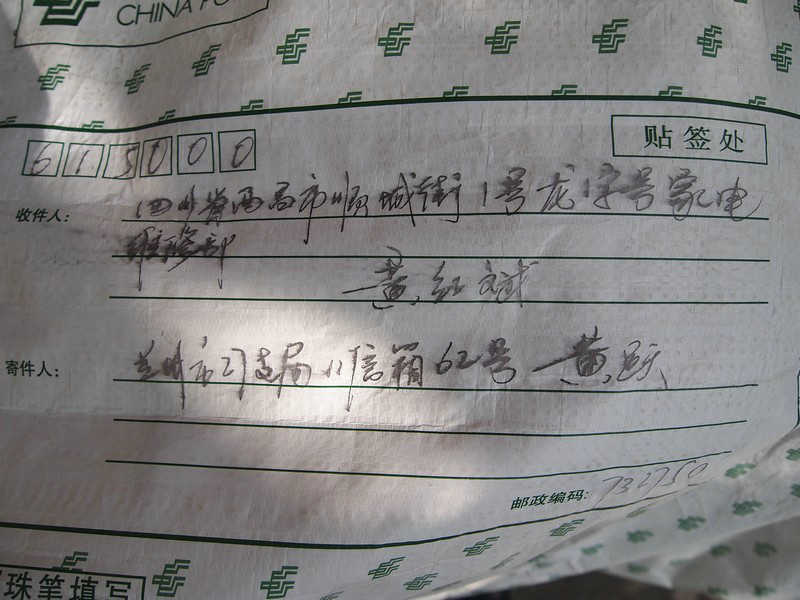 CHINA PO
615000
贴签处
收件人: 四川省西昌市顺城街1号龙字号家电
维修部
黄红斌
寄件人: 兰州市司法局 信箱62号 黄跃
邮政编码: 732750
珠笔填写